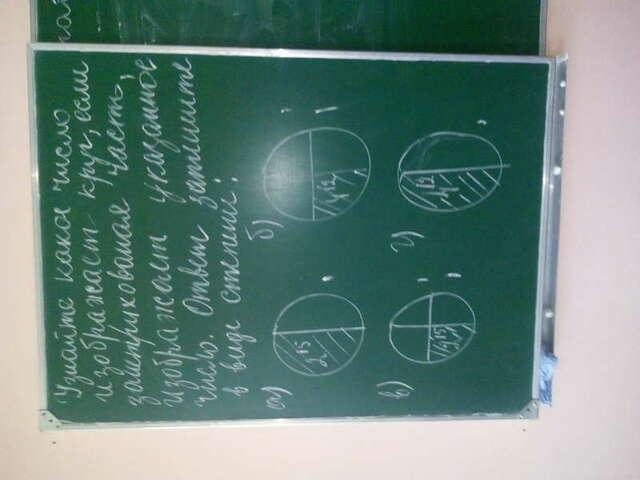 Узнайте какое число
изображает круг, если
заштрихованая часть,
изображает указанное
число. Ответ запишите
в виде степени:
а) 2¹⁵ б) 4¹²
в) 2¹⁵ г) 4¹²